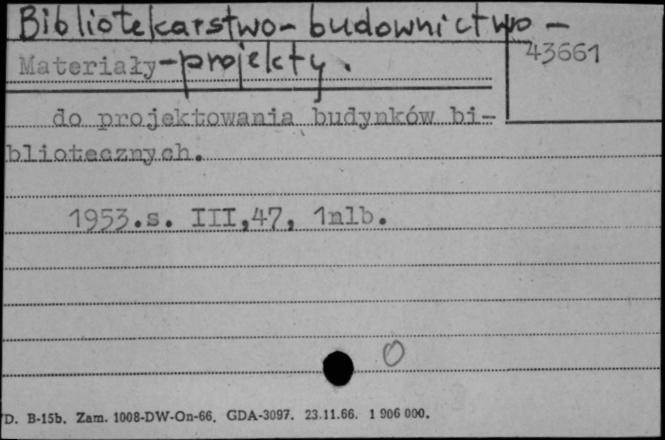 Bibliotekarstwo - budownictwo -
43661
Materiały - projekty.
do projektowania budynków bi-
bliotecznych.
1953.s. III,47, 1nlb.
0
D. B-15b. Zam. 1008-DW-On-66. GDA-3097. 23.11.66. 1 906 000.